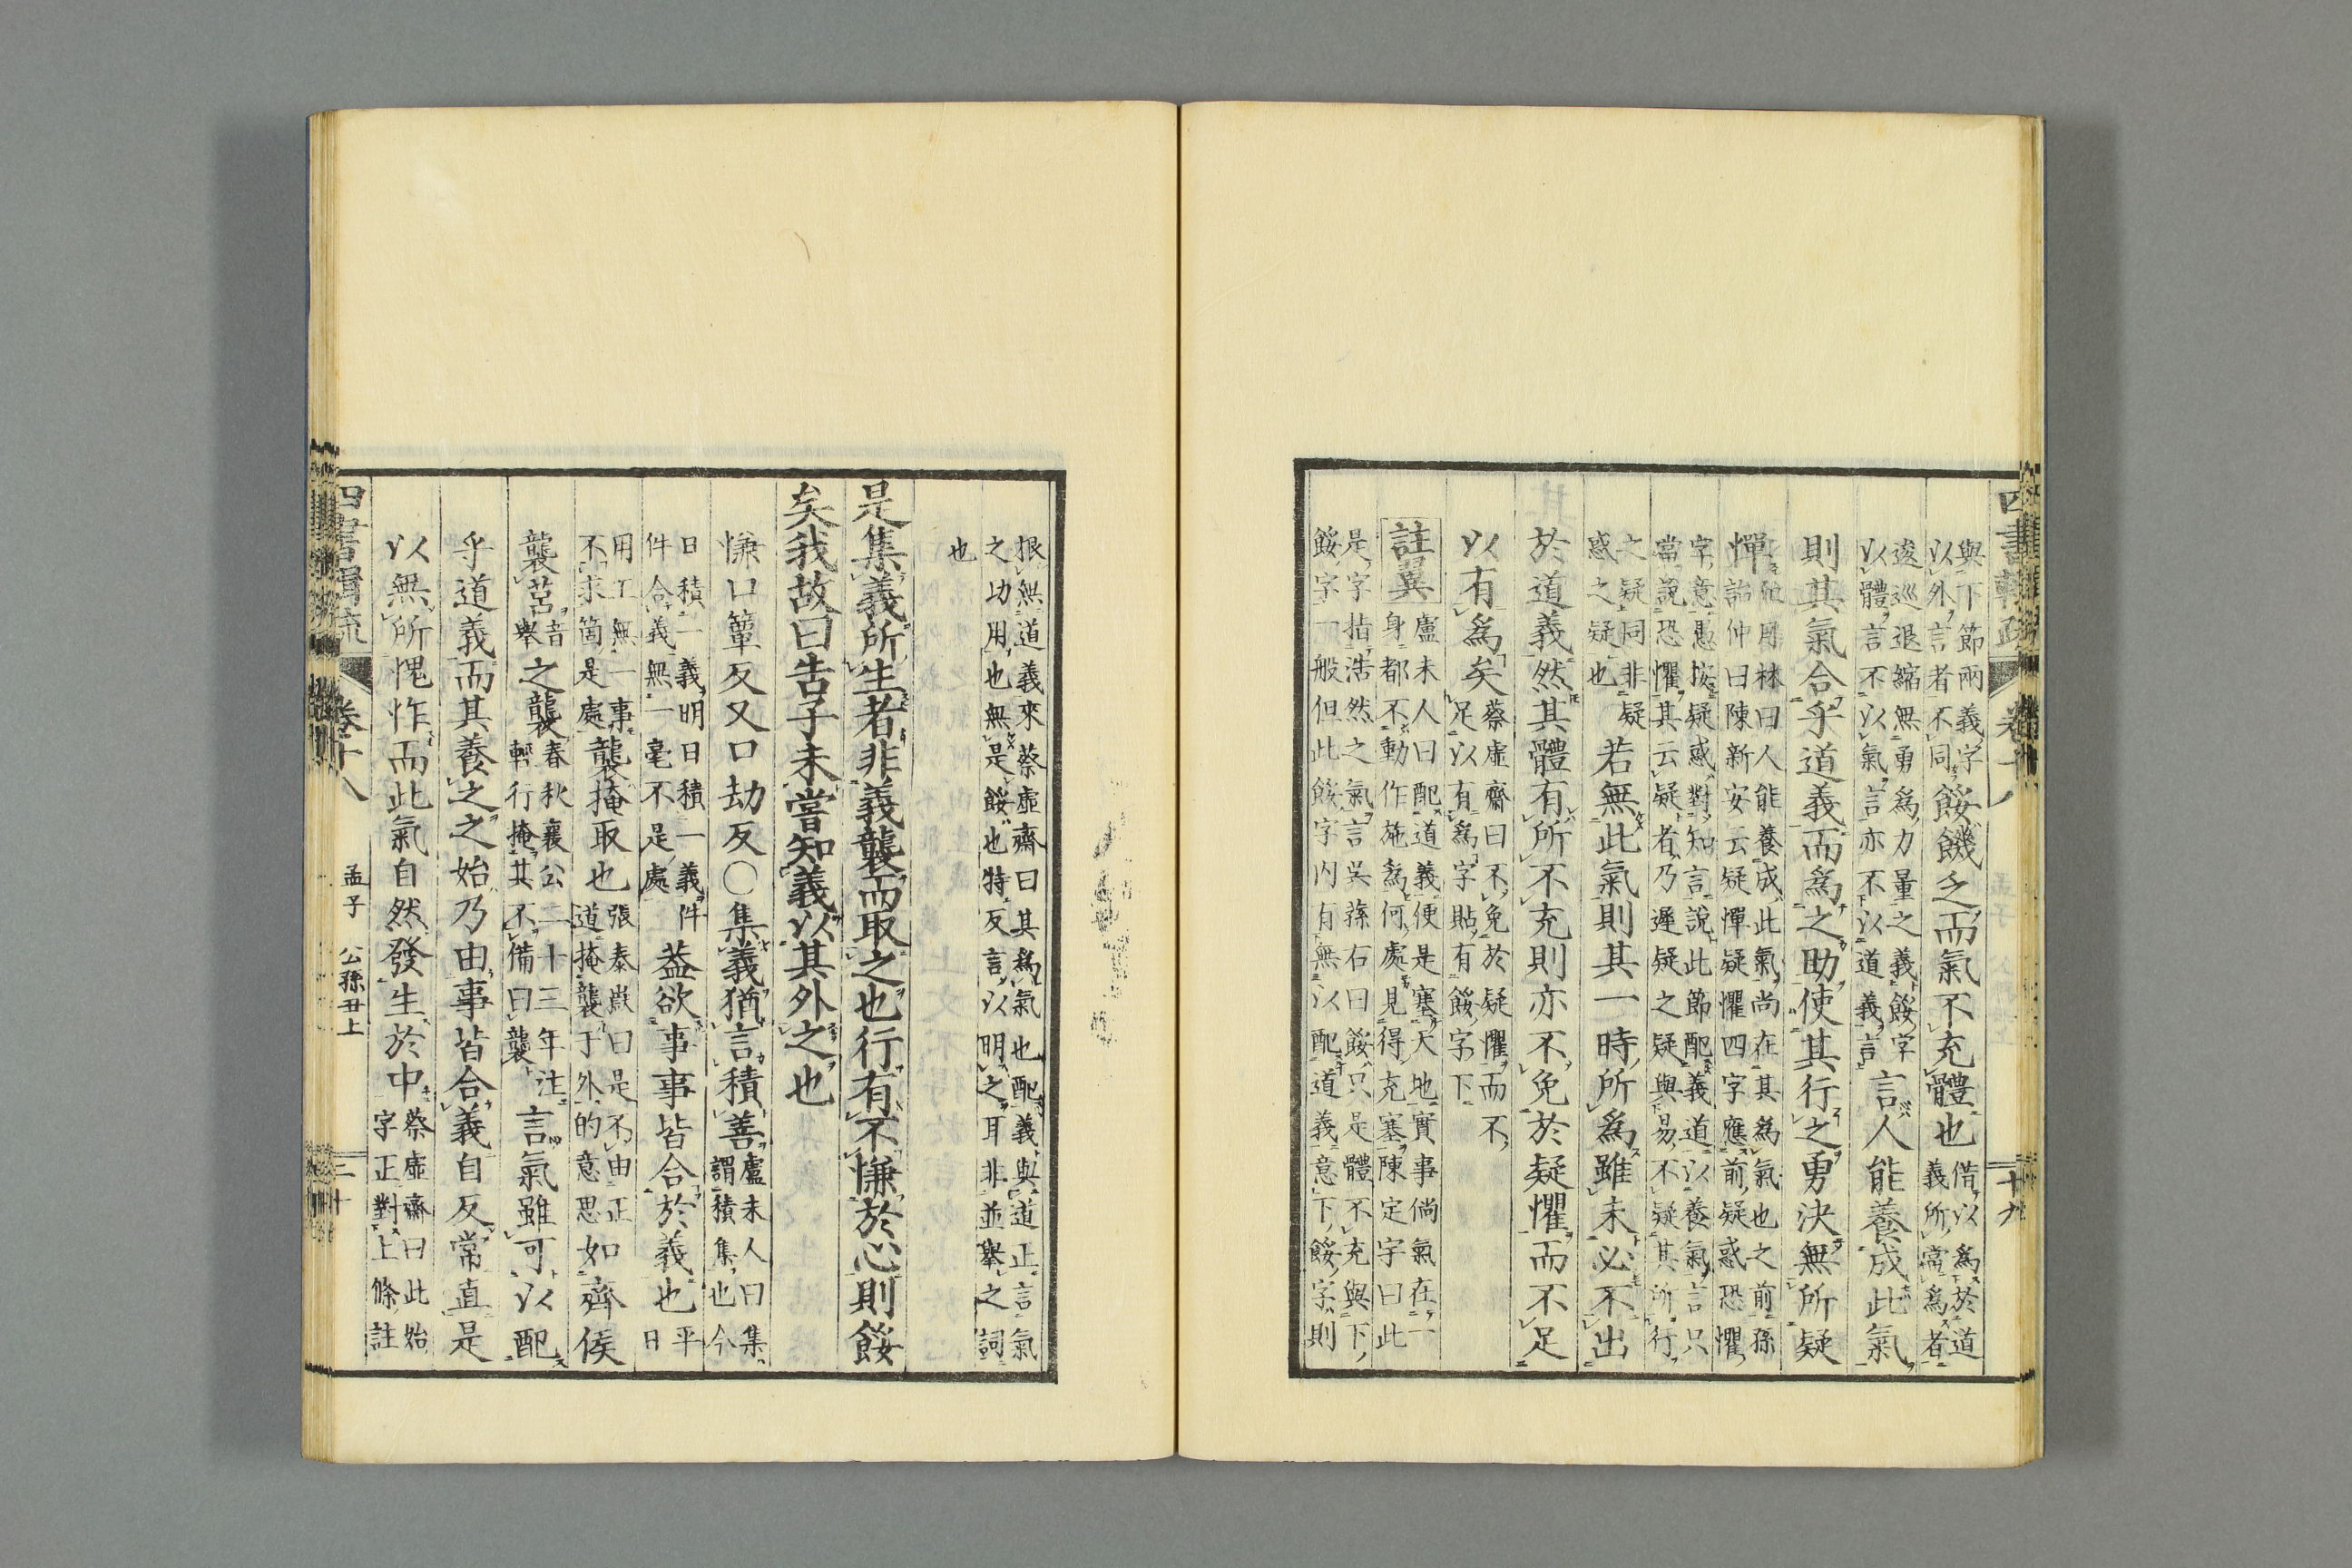 四書輯疏 卷十八 十九
與下節兩義字
以外言者不同
餒饑乏而氣不充體也
借以為於道
義所當為者
逡巡退縮無勇為力量之義餒字
以體言不以氣言亦不以道義言
言人能養成此氣
則其氣合乎道義而為之助使其行之勇決無所疑
憚
林曰人能養成此氣尚在其為氣也之前孫
詒仲曰陳新安云疑憚疑懼四字應前疑惑恐懼
字意愚按疑惑對知言說此節配義道以養氣言只
當說恐懼其云疑者乃遲疑之疑與易不疑其所行
之疑同非疑
惑之疑也
若無此氣則其一時所為雖未必不出
於道義然其體有所不充則亦不免於疑懼而不足
以有為矣
蔡虛齋曰不免於疑懼而不
足以有為字貼有餒字下
註翼
盧未人曰配道義便是塞天地實事倘氣在一
身都不動作施為何處見得充塞陳定宇曰此
是字指浩然之氣言吳蓀右曰餒只是體不充與下
餒字一般但此餒字内有無以配道義意下餒字則
根無道義來蔡虛齋曰其為氣也配義與道正言氣
之功用也無是餒也特反言以明之耳非並舉之詞
也
是集義所生者非義襲而取之也行有不慊於心則餒
矣我故曰告子未嘗知義以其外之也
慊口簟反又口劫反○集義猶言積善
盧未人曰集
謂積集也今
日積一義明日積一義件
件合義無一毫不是處
蓋欲事事皆合於義也
平
日
用工無一事
不求箇是處
襲掩取也
張泰嶽曰是不由正
道掩襲于外的意思
如齊侯
襲莒
音
舉
之襲
春秋襄公二十三年注
輕行掩其不備曰襲
言氣雖可以配
乎道義而其養之之始乃由事皆合義自反常直是
以無所愧怍而此氣自然發生於中
蔡虛齋曰此始
字正對上條註
四書輯疏 卷十八 孟子 公孫丑上 二十